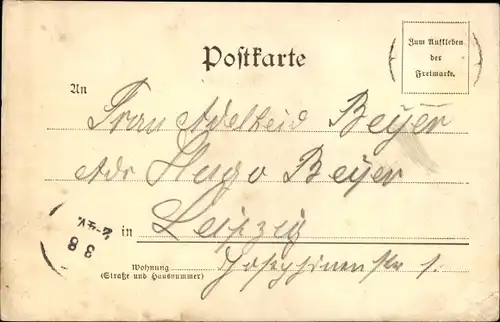 Postkarte
Zum Aufkleben
der
Freimarke.
An
Frau Adelheid Beyer
Adr Hugo Beyer
in Leipzig
Wohnung Josephinenstr 1.
(Straße und Hausnummer)